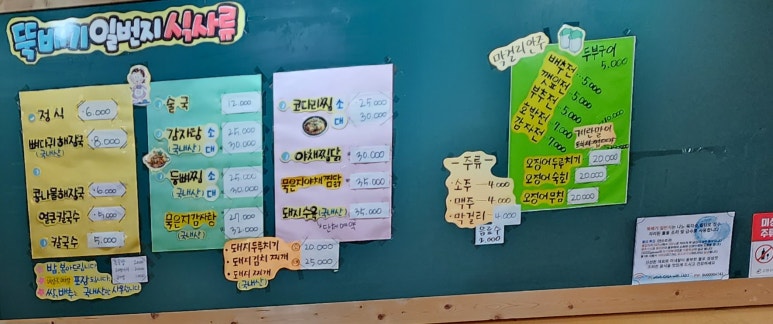 뚝배기 일번지 식사류
정식 6.000
뼈다귀해장국 8.000
(국내산)
콩나물해장국 6.000
칼국수 5.000
술국 12.000
감자탕 소 25.000
(국내산) 대 30.000
등뼈찜 소 25.000
(국내산) 대 30.000
묵은지감자탕 27.000
(국내산) 32.000
코다리찜 소 25.000
대 30.000
야채찜닭 30.000
묵은지야채찜닭 35.000
돼지수육(국내산) 35.000
돼지두루치기 20.000
돼지김치찌개 25.000
돼지찌개
(국내산)
밥, 볶아드립니다
포장됩니다
막걸리안주
두부구이
5.000
배추전 5.000
깻잎전 5.000
부추전 5.000
호박전 7.000
감자전 7.000
계란말이
오징어두루치기 20.000
오징어숙회 20.000
오징어무침 20.000
-주류-
소주 4.000
맥주 4.000
막걸리 4.000
음료수